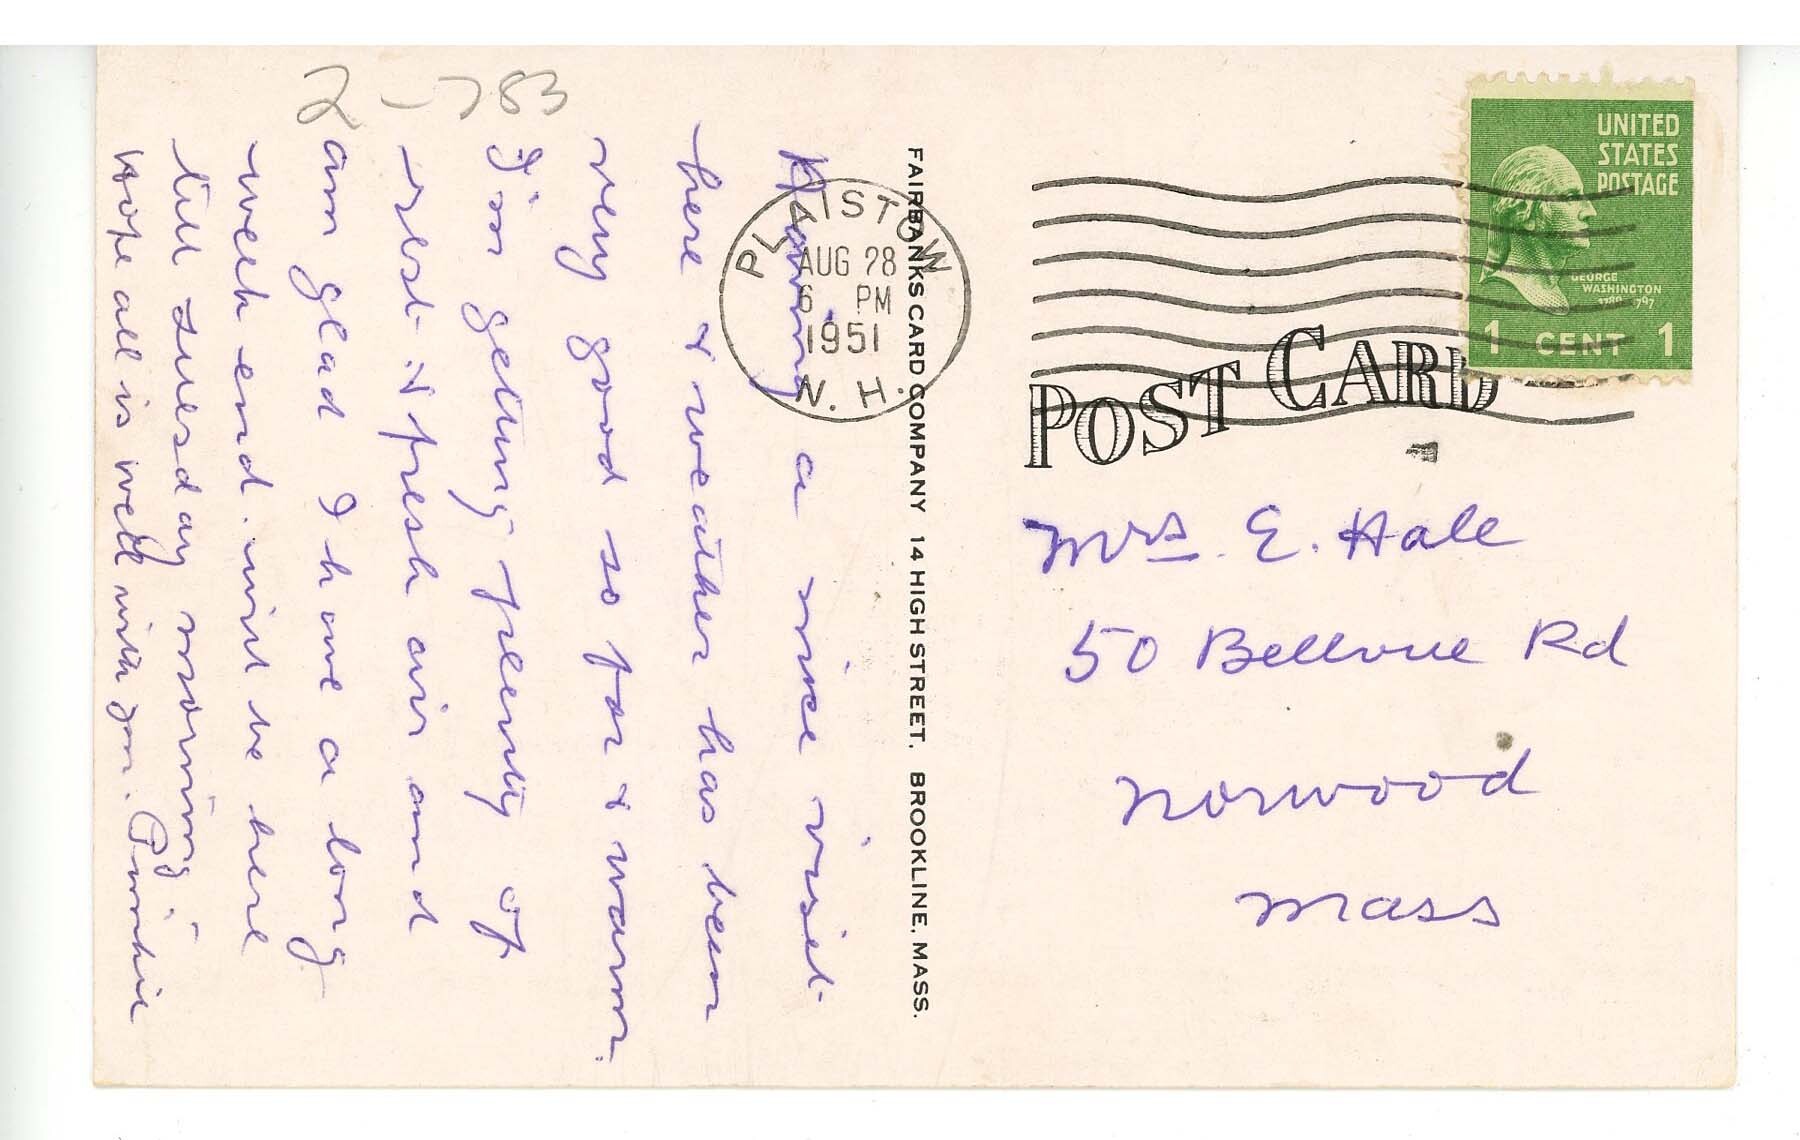 2-783
Having a nice visit
here & weather has been
very good so far & warm.
I'm getting plenty of
rest & fresh air and
am glad I have a long
week end. will be here
till Tuesday morning
Hope all is well with you.
FAIRBANKS CARD COMPANY 14 HIGH STREET, BROOKLINE, MASS.
PLAISTOW
AUG 28
6 PM
1951
N. H.
UNITED
STATES
POSTAGE
GEORGE
WASHINGTON
1789 1797
1 CENT 1
POST CARD
Mrs. E. Hale
50 Bellevue Rd
Norwood
Mass